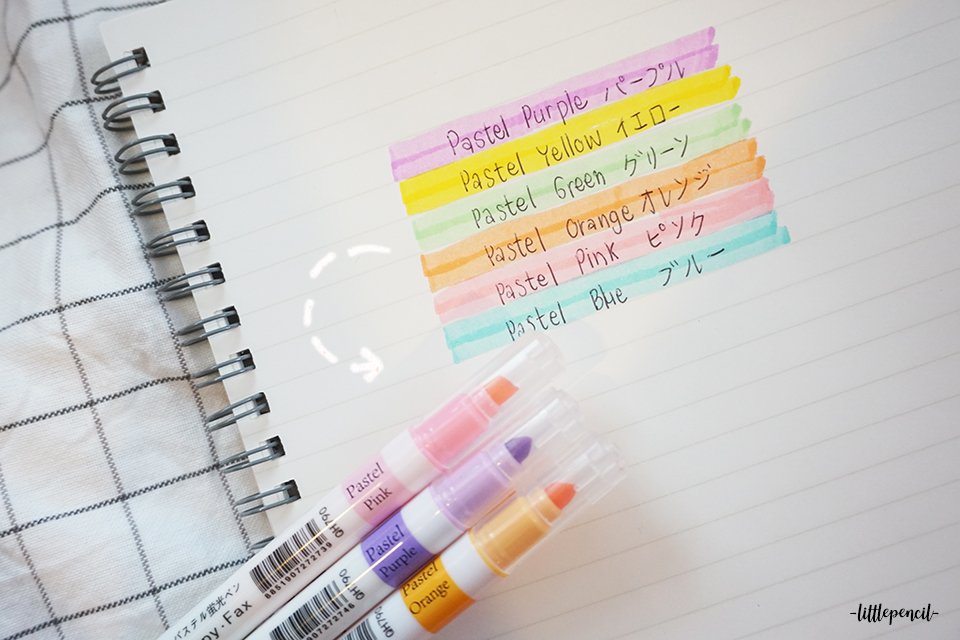 Pastel Purple パープル
Pastel Yellow イエロー
Pastel Green グリーン
Pastel Orange オレンジ
Pastel Pink ピンク
Pastel Blue ブルー
Pastel
Pink
QH790
8851907272739
パステル蛍光ペン
Pastel
Purple
QH790
8851907272746
Pastel
Orange
QH790
-littlepencil-